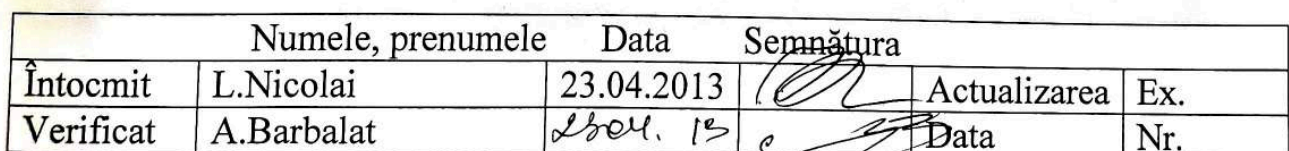 Numele, prenumele Data Semnătura
Întocmit L.Nicolai 23.04.2013 Actualizarea Ex.
Verificat A.Barbalat 23.04. 13 Data Nr.